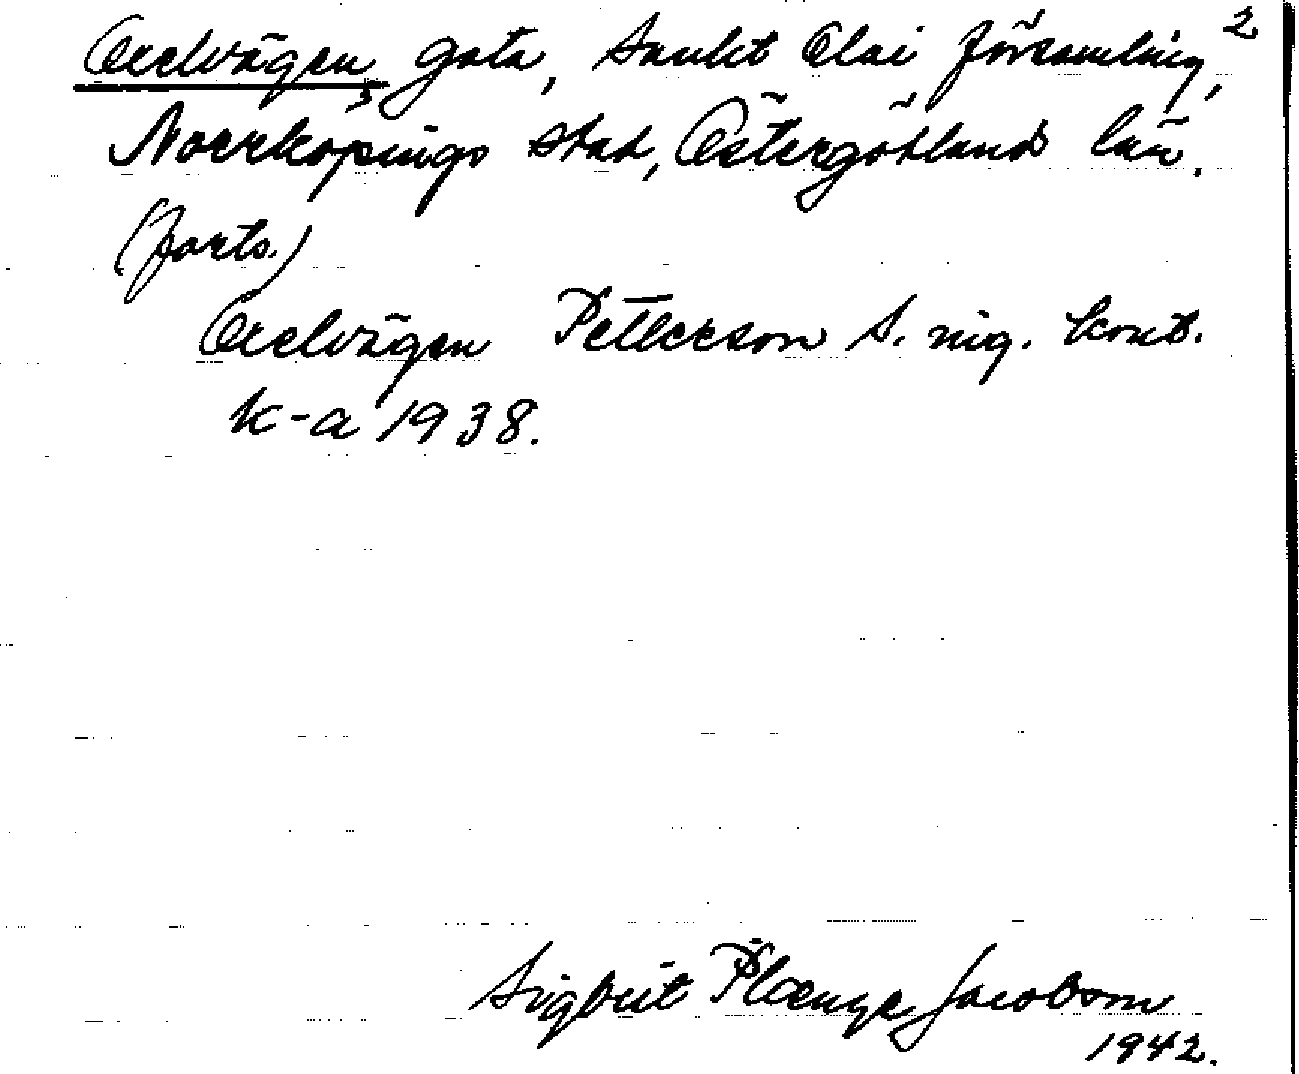 Axelvägen, gata, Sankt Olai församling, 2
Norrköpings stad, Östergötland län.
(forts.)
Axelvägen Petterson S. nig. kont.
k-a 1938.
Sigbrit Plænge Jacobson
1942.